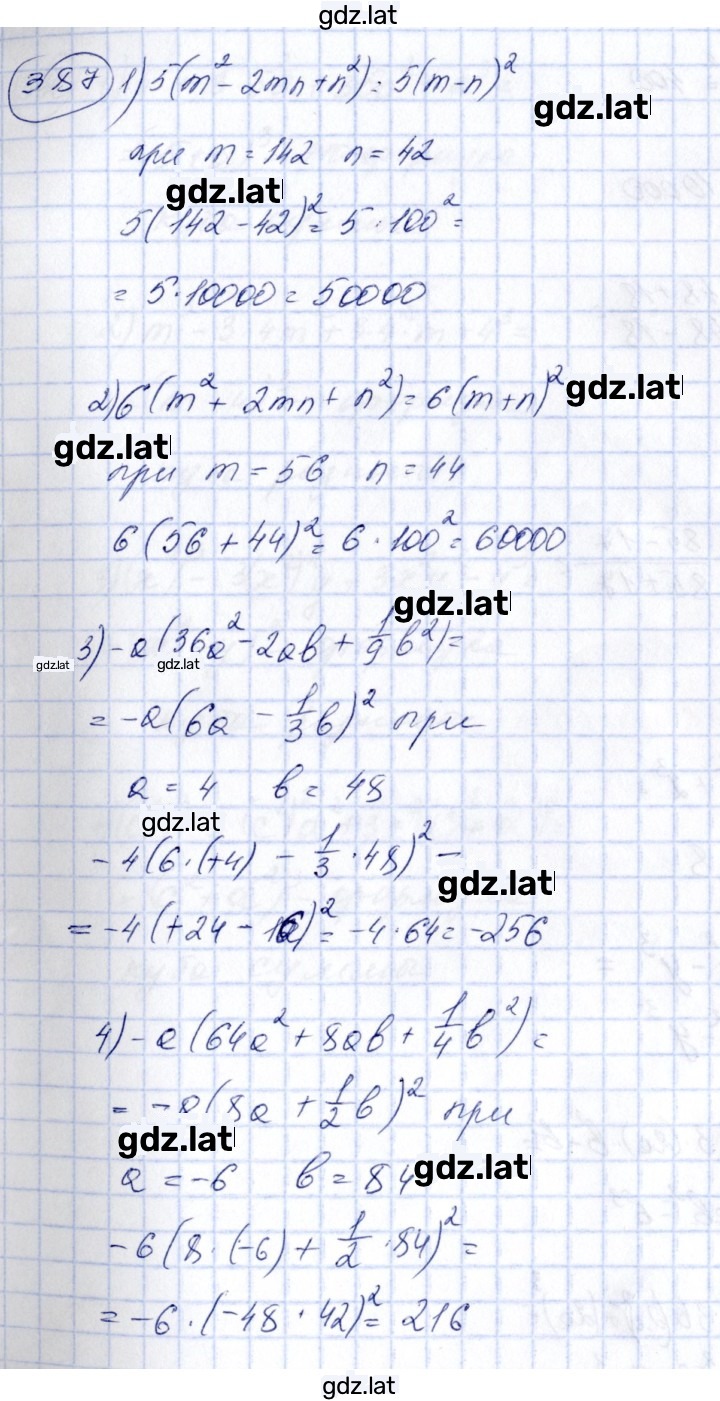 gdz.lat
387 1) 5(m² - 2mn + n²) = 5(m-n)²
gdz.lat
при m = 142 n = 42
gdz.lat
5(142 - 42)² = 5 · 100² =
= 5 · 10000 = 50000
2) 6(m² + 2mn + n²) = 6(m+n)²
gdz.lat
gdz.lat
при m = 56 n = 44
6(56 + 44)² = 6 · 100² = 60000
gdz.lat
3) -a(36a² - 2ab + 1/9 b²) =
gdz.lat
gdz.lat
= -a(6a - 1/3 b)² при
a = 4 b = 48
gdz.lat
- 4(6 · (+4) - 1/3 · 48)² -
gdz.lat
= -4(+24 - 16)² = -4 · 64 = -256
4) -a(64a² + 8ab + 1/4 b²) =
= -a(8a + 1/2 b)² при
gdz.lat
a = -6 b = 84
gdz.lat
-6(8 · (-6) + 1/2 · 84)² =
= -6 · (-48 · 42)² = 216
gdz.lat